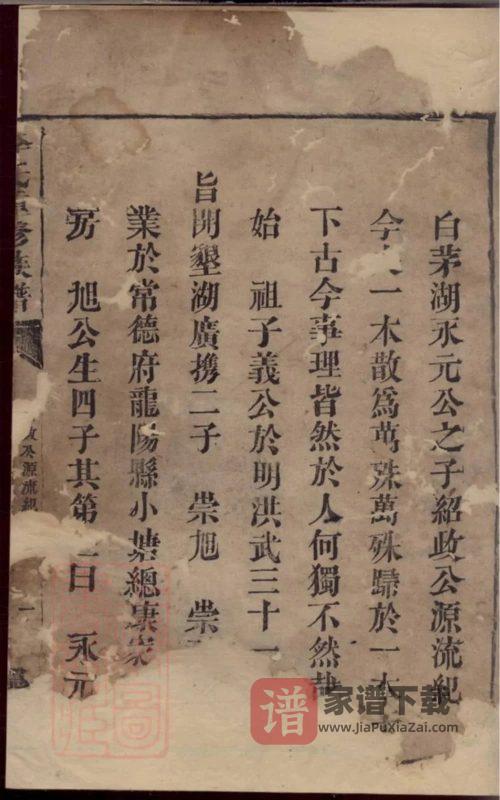 白茅湖永元公之子紹政公源流紀
今 一本散為萬殊萬殊歸於一本
下古今事理皆然於人何獨不然哉
始 祖子義公於明洪武三十一
旨開墾湖廣携二子 崇旭 崇
業於常德府龍陽縣小塘總康家
房 旭公生四子其第 曰 永元
修族譜
政公源流紀
一
譜 家谱下载
www.jiaPuXiaZai.com